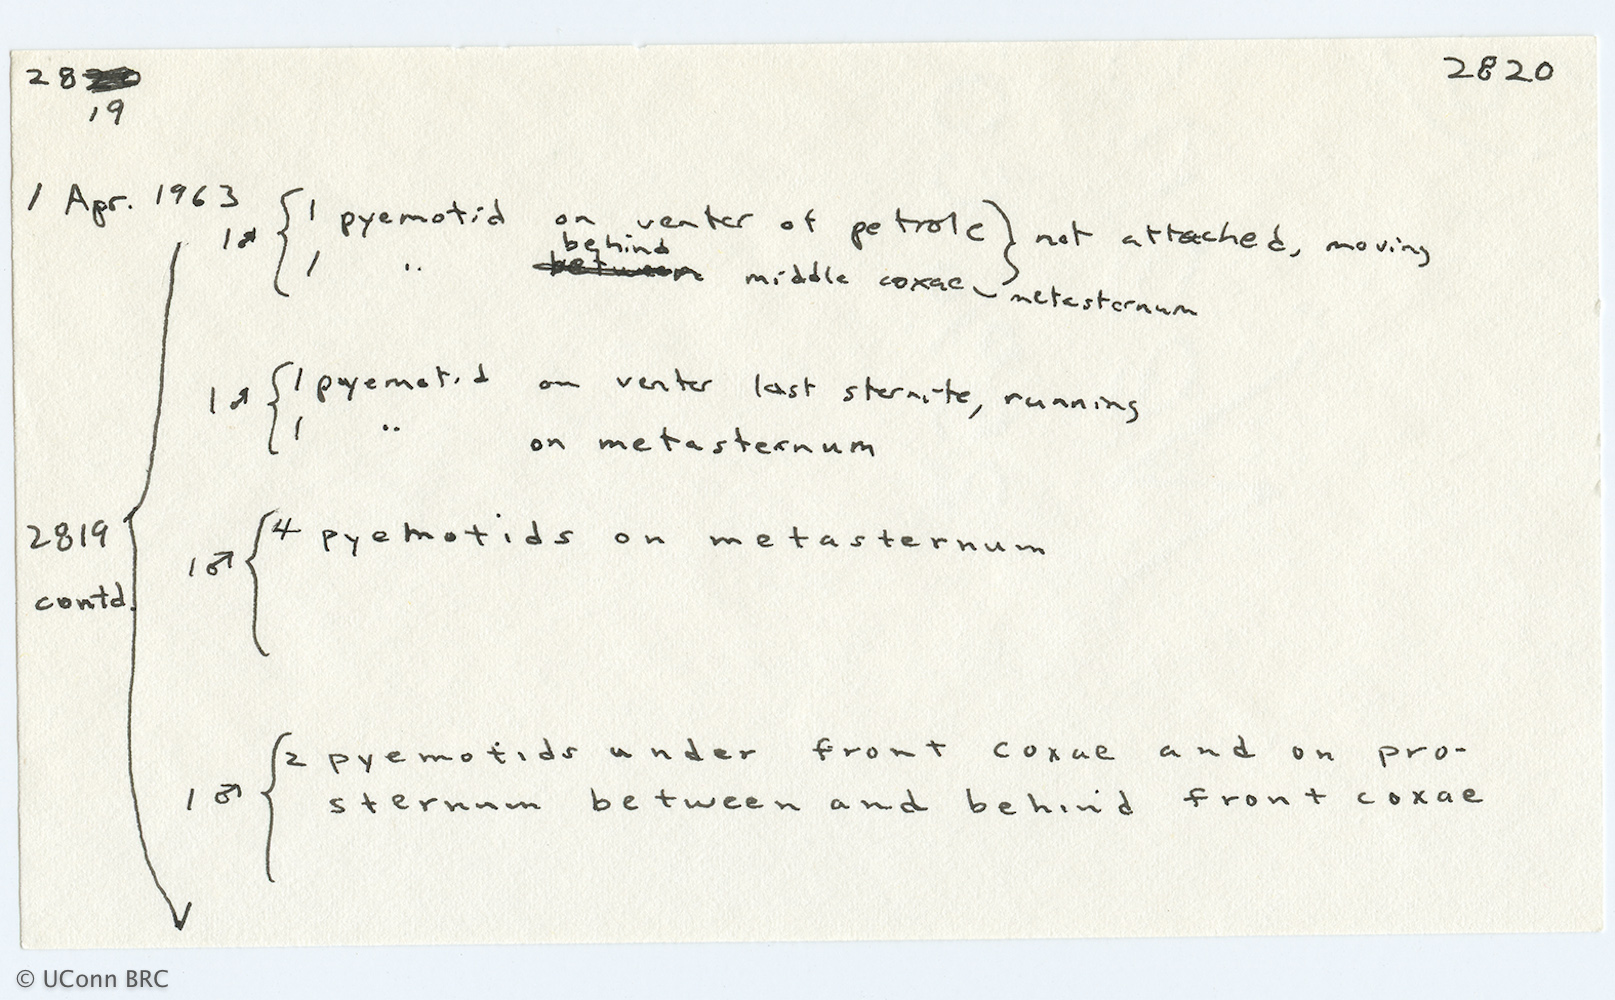 28 2820
19
1 Apr. 1963 1♂ { 1 pyemotid on venter of petiole } not attached, moving
behind
1 " between middle coxae – metasternum
1♂ { 1 pyemotid on venter last sternite, running
1 " on metasternum
2819 contd.
1♂ { 4 pyemotids on metasternum
1♂ { 2 pyemotids under front coxae and on pro-
sternum between and behind front coxae
© UConn BRC